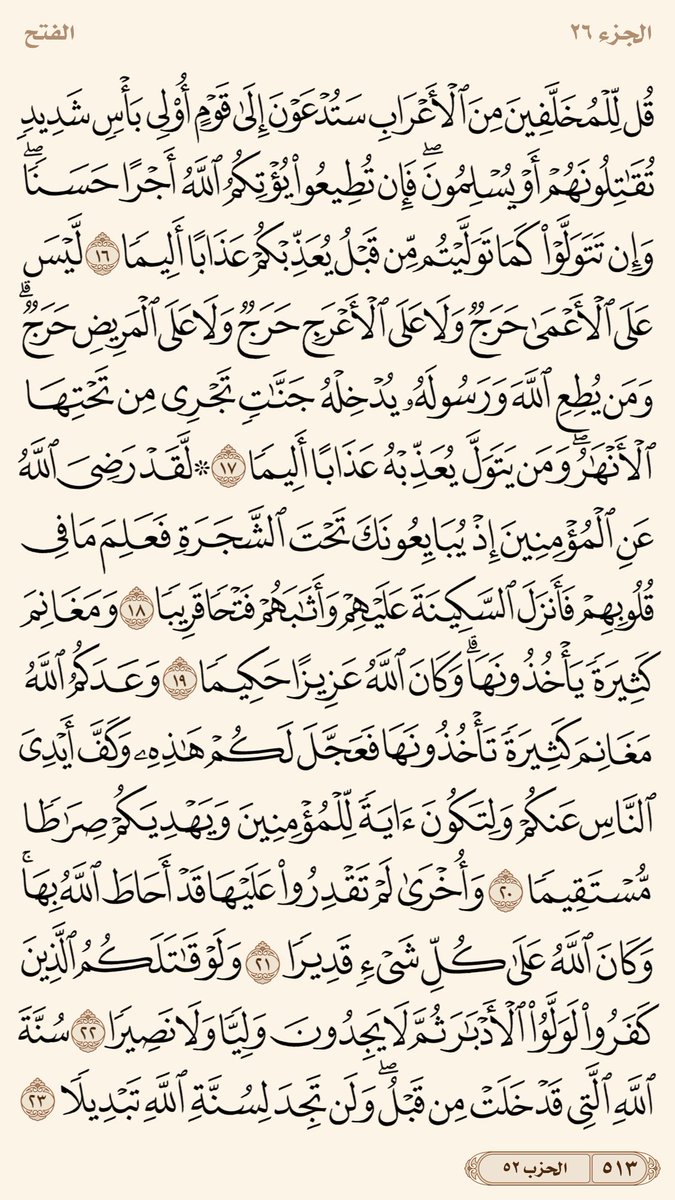 الجزء ٢٦ الفتح
قُل لِّلْمُخَلَّفِينَ مِنَ ٱلْأَعْرَابِ سَتُدْعَوْنَ إِلَىٰ قَوْمٍ أُو۟لِى بَأْسٍ شَدِيدٍ
تُقَـٰتِلُونَهُمْ أَوْ يُسْلِمُونَ ۖ فَإِن تُطِيعُوا۟ يُؤْتِكُمُ ٱللَّهُ أَجْرًا حَسَنًا ۖ
وَإِن تَتَوَلَّوْا۟ كَمَا تَوَلَّيْتُم مِّن قَبْلُ يُعَذِّبْكُمْ عَذَابًا أَلِيمًا ١٦ لَّيْسَ
عَلَى ٱلْأَعْمَىٰ حَرَجٌ وَلَا عَلَى ٱلْأَعْرَجِ حَرَجٌ وَلَا عَلَى ٱلْمَرِيضِ حَرَجٌ ۗ
وَمَن يُطِعِ ٱللَّهَ وَرَسُولَهُۥ يُدْخِلْهُ جَنَّـٰتٍ تَجْرِى مِن تَحْتِهَا
ٱلْأَنْهَـٰرُ ۖ وَمَن يَتَوَلَّ يُعَذِّبْهُ عَذَابًا أَلِيمًا ١٧ ۞ لَّقَدْ رَضِىَ ٱللَّهُ
عَنِ ٱلْمُؤْمِنِينَ إِذْ يُبَايِعُونَكَ تَحْتَ ٱلشَّجَرَةِ فَعَلِمَ مَا فِى
قُلُوبِهِمْ فَأَنزَلَ ٱلسَّكِينَةَ عَلَيْهِمْ وَأَثَـٰبَهُمْ فَتْحًا قَرِيبًا ١٨ وَمَغَانِمَ
كَثِيرَةً يَأْخُذُونَهَا ۗ وَكَانَ ٱللَّهُ عَزِيزًا حَكِيمًا ١٩ وَعَدَكُمُ ٱللَّهُ
مَغَانِمَ كَثِيرَةً تَأْخُذُونَهَا فَعَجَّلَ لَكُمْ هَـٰذِهِۦ وَكَفَّ أَيْدِىَ
ٱلنَّاسِ عَنكُمْ وَلِتَكُونَ ءَايَةً لِّلْمُؤْمِنِينَ وَيَهْدِيَكُمْ صِرَٰطًا
مُّسْتَقِيمًا ٢٠ وَأُخْرَىٰ لَمْ تَقْدِرُوا۟ عَلَيْهَا قَدْ أَحَاطَ ٱللَّهُ بِهَا ۚ
وَكَانَ ٱللَّهُ عَلَىٰ كُلِّ شَىْءٍ قَدِيرًا ٢١ وَلَوْ قَـٰتَلَكُمُ ٱلَّذِينَ
كَفَرُوا۟ لَوَلَّوُا۟ ٱلْأَدْبَـٰرَ ثُمَّ لَا يَجِدُونَ وَلِيًّا وَلَا نَصِيرًا ٢٢ سُنَّةَ
ٱللَّهِ ٱلَّتِى قَدْ خَلَتْ مِن قَبْلُ ۖ وَلَن تَجِدَ لِسُنَّةِ ٱللَّهِ تَبْدِيلًا ٢٣
٥١٣ الحزب ٥٢